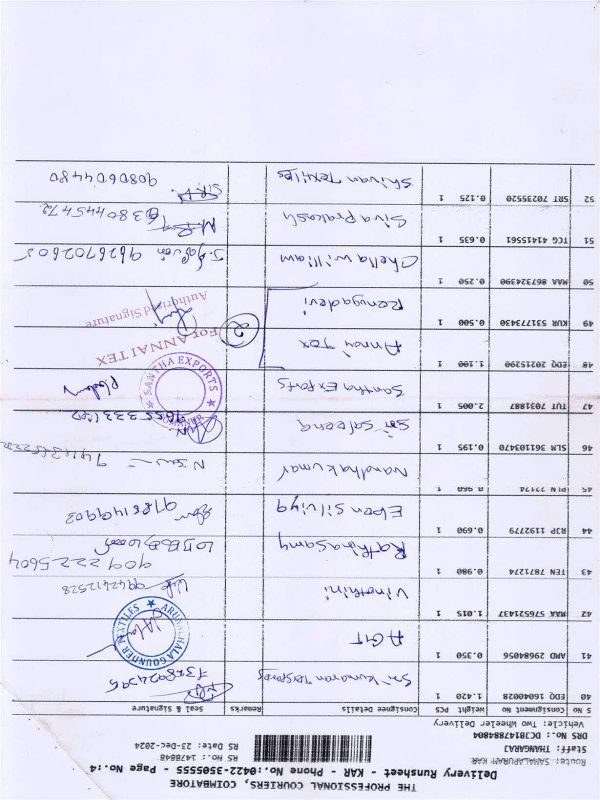 THE PROFESSIONAL COURIERS, COIMBATORE
Delivery Runsheet - KAR - Phone No.:0422-3505555 - Page No.:4
Route: SAMALAPURAM KAR
Staff: THANGARAJ RS No.: 1478848
DRS No.: DCJB147884804 RS Date: 23-Dec-2024
Vehicle: Two Wheeler Delivery
S No Consignment No Weight PCS Consignee Details Remarks Seal & Signature
40 EDQ 16040028 1.420 1 Sri Kumaran
41 AMD 29684056 0.350 1 AGT ARUNACHALA GOUNDER TEXTILES
42 MAA 576521437 1.015 1 Vinothini 9942412528
43 TEN 71871274 0.980 1 Rathinasamy 909 2225604
44 RJP 1192779 0.690 1 Eben Silviya
45 Nandhakumar
46 SLM 361103470 0.195 1 Sri Saleena
47 TUT 7031887 2.005 1 Santha Exports SANTHA EXPORTS
48 EDQ 20215290 1.100 1 Annai Tex 2 For ANNAI TEX
49 KUR 531773430 0.500 1 Renugadevi Authorised Signature
50 MAA 867324390 0.250 1 Chella william 9626702605
51 TCG 41415561 0.635 1 Siva Prakash 6380445472
52 SRT 70235520 0.125 1 Shivan Textiles 9080604480